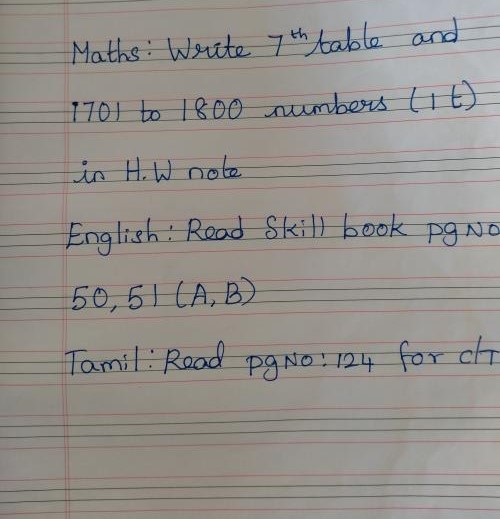 Maths: Write 7th table and
1701 to 1800 numbers (1 t)
in H.W note
English: Read Skill book pg No
50, 51 (A, B)
Tamil: Read pg No: 124 for c/T